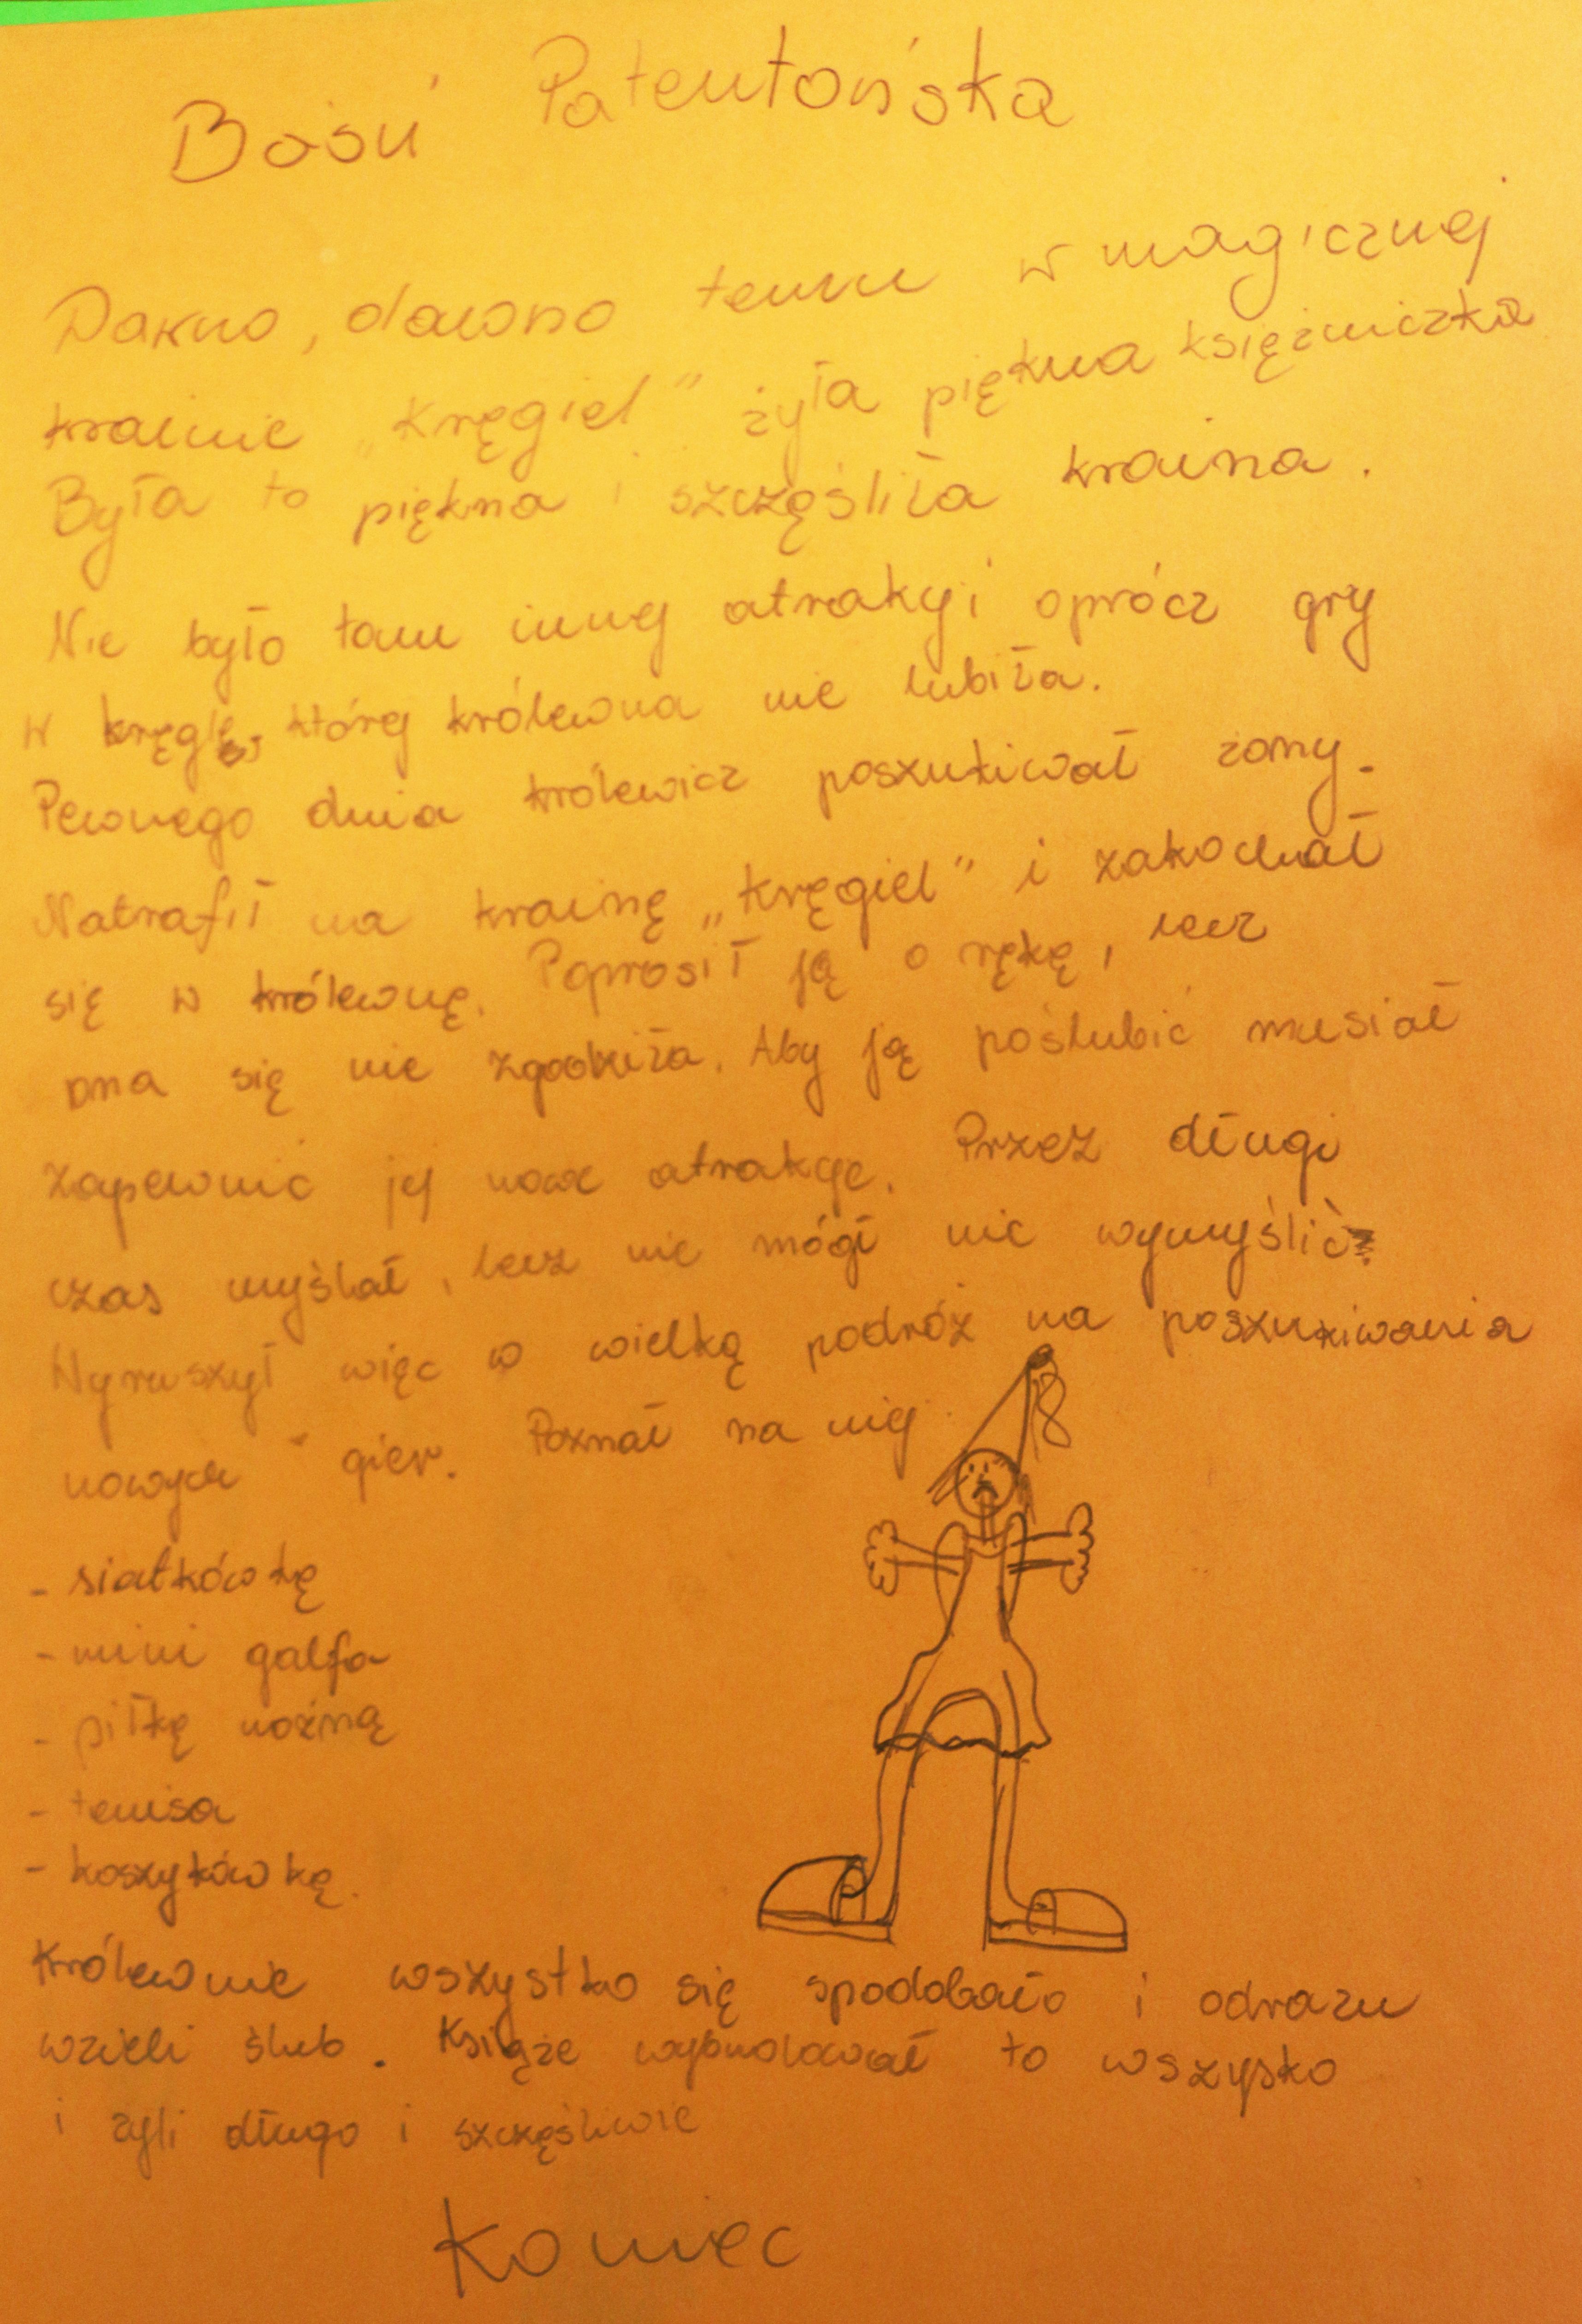 Baśń Patentońska
Dawno, dawno temu w magicznej
krainie „Kręgiel” żyła piękna księżniczka
Była to piękna i szczęśliła kraina.
Nie było tam innej atrakyji oprócz gry
w kręgle, której królewna nie lubiła.
Pewnego dnia królewicz poszukiwał żony.
Natrafił na krainę „Kręgiel” i zakochał
się w królewnę. Poprosił ją o rękę, lecz
ona się nie zgodziła. Aby ją poślubić musiał
zapewnić jej nowe atrakcje. Przez długi
czas myślał, lecz nie mógł nic wymyślić
Wyruszył więc w wielką podróż na poszukiwania
nowych gier. Poznał na niej
- siatkówkę
- mini galfa
- piłkę nożną
- tenisa
- koszykówkę.
Królewnie wszystko się spodobało i odrazu
wzieli ślub. Książe wybudował to wszysko
i żyli długo i szczęśliwie
Koniec